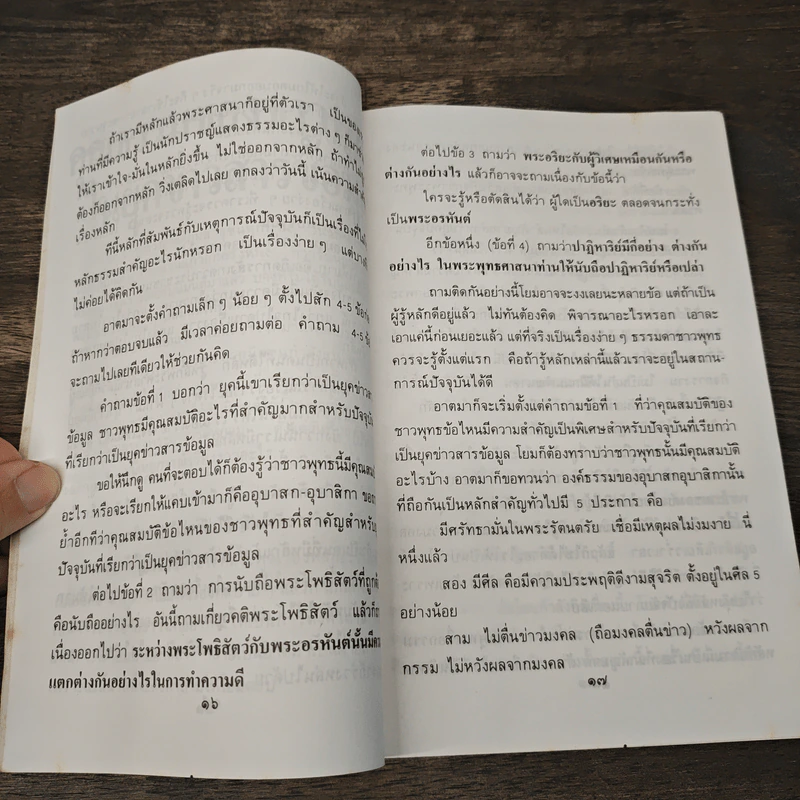 ถ้าเรามีหลักแล้วพระศาสนาก็อยู่ที่ตัวเรา เป็นของ
ท่านที่มีความรู้ เป็นนักปราชญ์แสดงธรรมอะไรต่าง ๆ ก็มา
ให้เราเข้าใจ-มั่นในหลักยิ่งขึ้น ไม่ใช่ออกจากหลัก ถ้าทำไม่
ต้องก็ออกจากหลัก วิ่งเตลิดไปเลย ตกลงว่าวันนี้ เน้นความสำ
เรื่องหลัก
ทีนี้หลักที่สัมพันธ์กับเหตุการณ์ปัจจุบันก็เป็นเรื่องที่ไม่
หลักธรรมสำคัญอะไรนักหรอก เป็นเรื่องง่าย ๆ แต่บาง
ไม่ค่อยได้คิดกัน
อาตมาจะตั้งคำถามเล็ก ๆ น้อย ๆ ตั้งไปสัก 4-5 ข้อ
ถ้าหากว่าตอบจบแล้ว มีเวลาค่อยถามต่อ คำถาม 4-5 ข้อ
จะถามไปเลยทีเดียวให้ช่วยกันคิด
คำถามข้อที่ 1 บอกว่า ยุคนี้เขาเรียกว่าเป็นยุคข่าวส
ข้อมูล ชาวพุทธมีคุณสมบัติอะไรที่สำคัญมากสำหรับปัจจุบั
ที่เรียกว่าเป็นยุคข่าวสารข้อมูล
ขอให้นึกดู คนที่จะตอบได้ก็ต้องรู้ว่าชาวพุทธนี้มีคุณสม
อะไร หรือจะเรียกให้แคบเข้ามาก็คืออุบาสก-อุบาสิกา ขอ
ย้ำอีกทีว่าคุณสมบัติข้อไหนของชาวพุทธที่สำคัญสำหรับ
ปัจจุบันที่เรียกว่าเป็นยุคข่าวสารข้อมูล
ต่อไปข้อที่ 2 ถามว่า การนับถือพระโพธิสัตว์ที่ถูกต้
คือนับถืออย่างไร อันนี้ถามเกี่ยวคติพระโพธิสัตว์ แล้วก็ถ
เนื่องออกไปว่า ระหว่างพระโพธิสัตว์กับพระอรหันต์นั้นมีคว
แตกต่างกันอย่างไรในการทำความดี
๑๖
ต่อไปข้อ 3 ถามว่า พระอริยะกับผู้วิเศษเหมือนกันหรือ
ต่างกันอย่างไร แล้วก็อาจจะถามเนื่องกับข้อนี้ว่า
ใครจะรู้หรือตัดสินได้ว่า ผู้ใดเป็นอริยะ ตลอดจนกระทั่ง
เป็นพระอรหันต์
อีกข้อหนึ่ง (ข้อที่ 4) ถามว่าปาฏิหาริย์มีกี่อย่าง ต่างกัน
อย่างไร ในพระพุทธศาสนาท่านให้นับถือปาฏิหาริย์หรือเปล่า
ถามติดกันอย่างนี้โยมอาจจะงงเลยนะหลายข้อ แต่ถ้าเป็น
ผู้รู้หลักดีอยู่แล้ว ไม่ทันต้องคิด พิจารณาอะไรหรอก เอาละ
เอาแค่นี้ก่อนเยอะแล้ว แต่ที่จริงเป็นเรื่องง่าย ๆ ธรรมดาชาวพุทธ
ควรจะรู้ตั้งแต่แรก คือถ้ารู้หลักเหล่านี้แล้วเราจะอยู่ในสถาน-
การณ์ปัจจุบันได้ดี
อาตมาก็จะเริ่มตั้งแต่คำถามข้อที่ 1 ที่ว่าคุณสมบัติของ
ชาวพุทธข้อไหนมีความสำคัญเป็นพิเศษสำหรับปัจจุบันที่เรียกว่า
เป็นยุคข่าวสารข้อมูล โยมก็ต้องทราบว่าชาวพุทธนั้นมีคุณสมบัติ
อะไรบ้าง อาตมาก็ขอทวนว่า องค์ธรรมของอุบาสกอุบาสิกานั้น
ที่ถือกันเป็นหลักสำคัญทั่วไปมี 5 ประการ คือ
มีศรัทธามั่นในพระรัตนตรัย เชื่อมีเหตุผลไม่งมงาย นี่
หนึ่งแล้ว
สอง มีศีล คือมีความประพฤติดีงามสุจริต ตั้งอยู่ในศีล 5
อย่างน้อย
สาม ไม่ตื่นข่าวมงคล (ถือมงคลตื่นข่าว) หวังผลจาก
กรรม ไม่หวังผลจากมงคล
๑๗